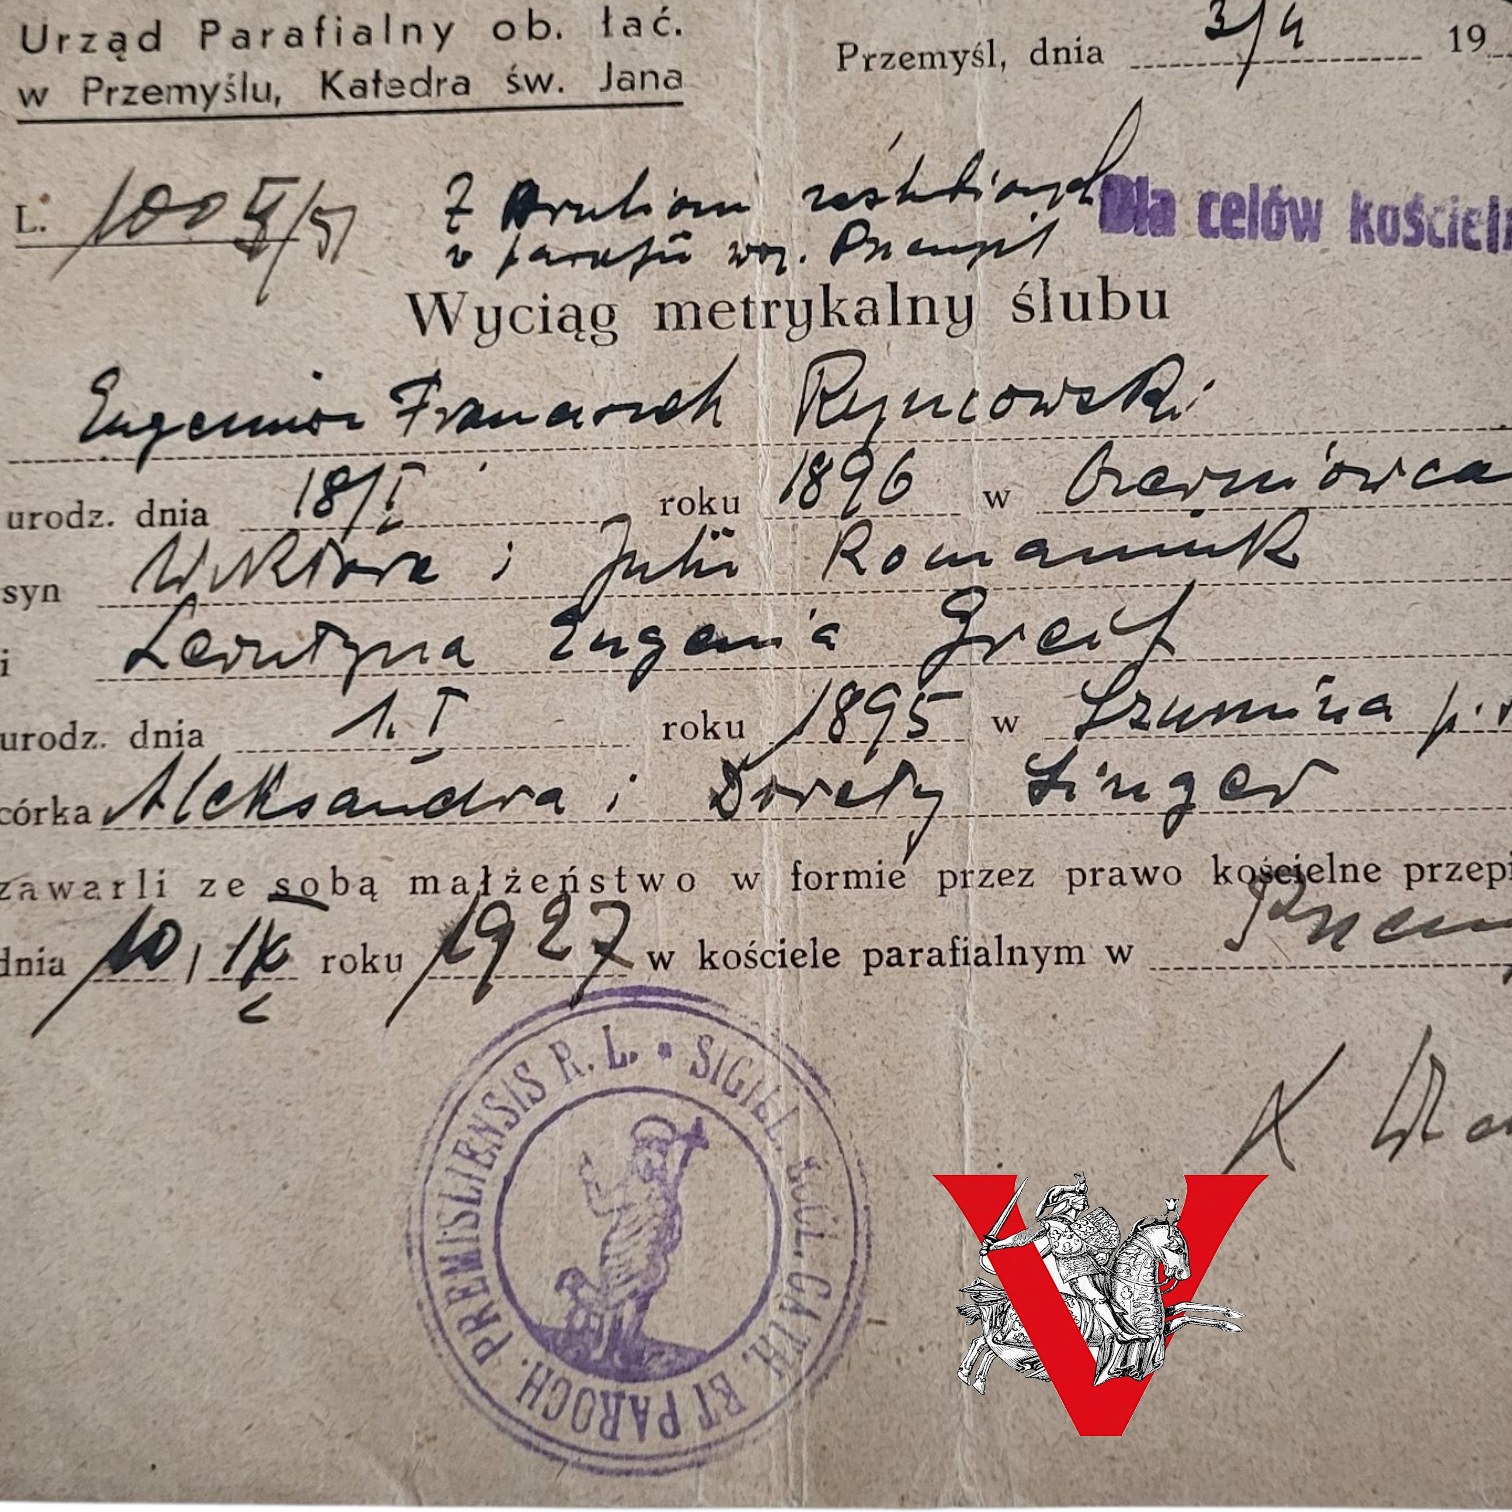 Urząd Parafialny ob. łać.
w Przemyślu, Katedra św. Jana
Przemyśl, dnia 3/4 19
L. 100 /51
Z
zaślubionych
w parafii woj. Przemyśl
Dla celów kościel
Wyciąg metrykalny ślubu
Eugeniusz Franciszek Ryncowski
urodz. dnia 18/I roku 1896 w Czerniowca
syn Wiktora i Julii Romaniuk
i Leontyna Eugenia Greif
urodz. dnia 1. I roku 1895 w Szumina p.
córka Aleksandra i Doroty Singer
zawarli ze sobą małżeństwo w formie przez prawo kościelne przepi
dnia 10 / IX roku 1927 w kościele parafialnym w Przem
X
SIGILL. ECCL. CATH. ET PAROCH. PREMISLIENSIS R. L.
V